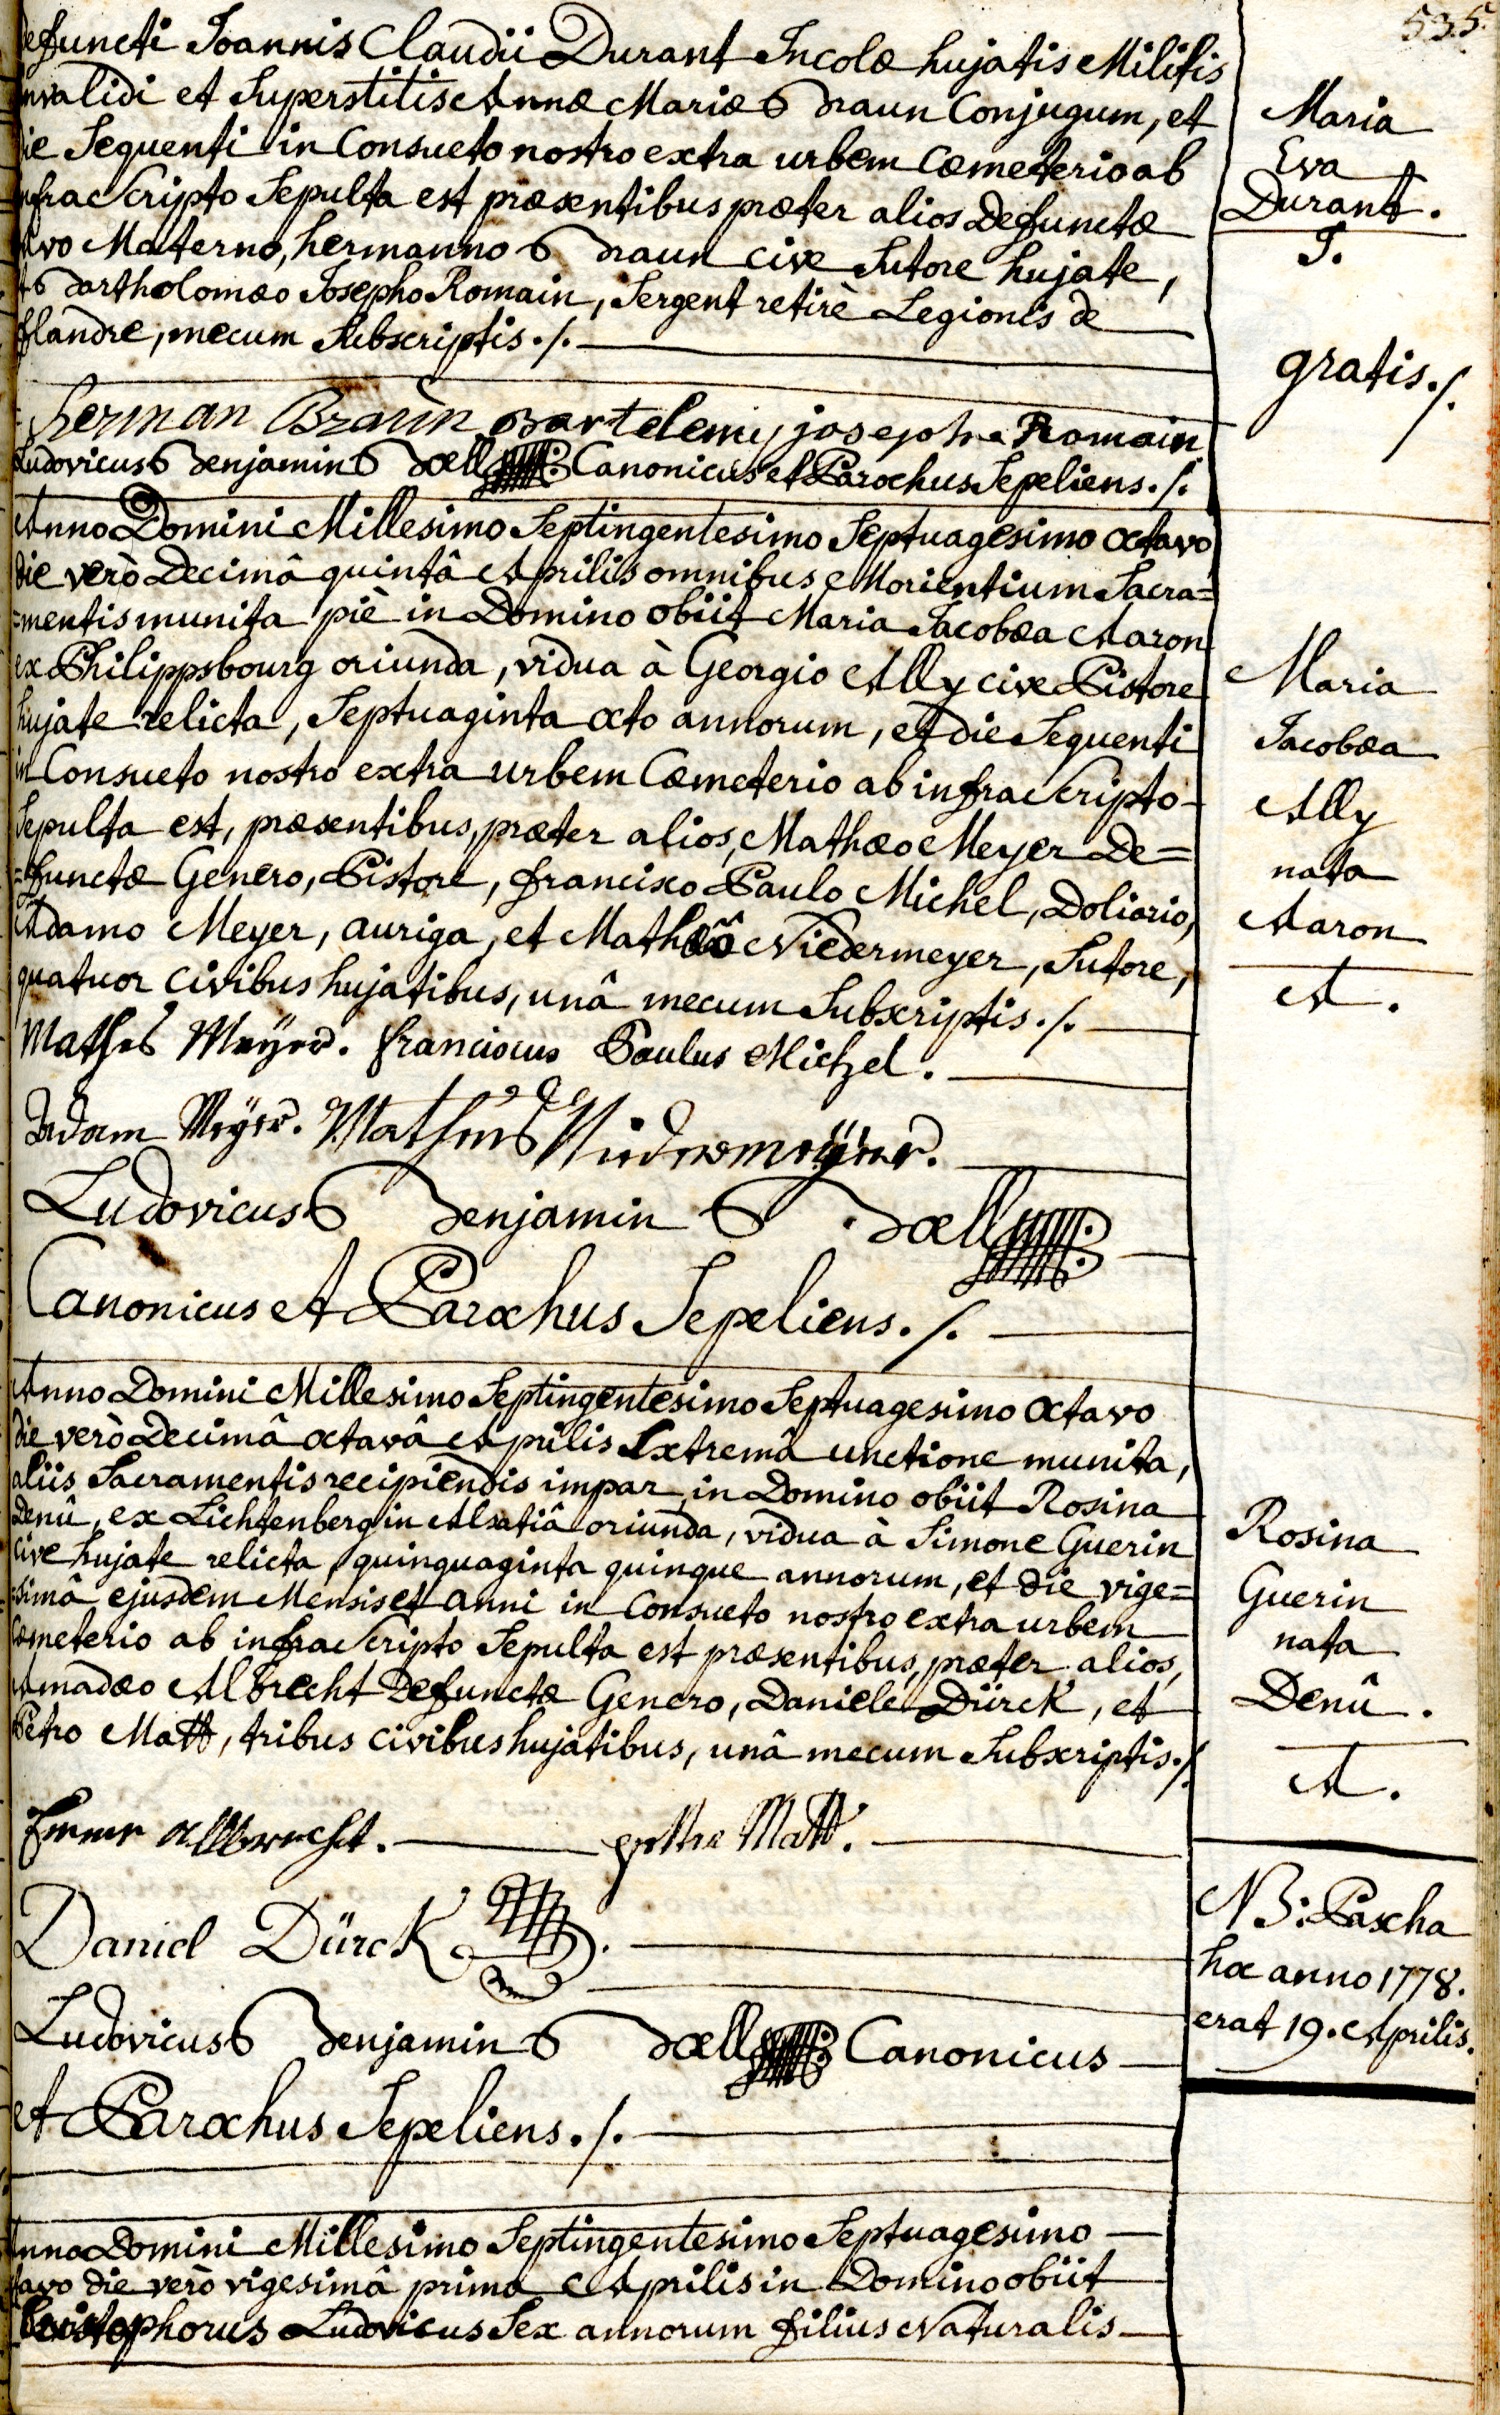 535.
defuncti Joannis Claudii Durant Incolæ hujatis Militis
invalidi et Superstitis Annæ Mariæ Braun Conjugum, et
die Sequenti in Consueto nostro extra urbem Cœmeterio ab
infra Scripto Sepulta est præsentibus præter alios Defunctæ
Avo Materno, hermanno Braun cive Sutore hujate,
et Bartholomæo Josepho Romain, Sergent retirè Legionis de
flandre, mecum Subscriptis ./.
Maria
Eva
Durant.
J.
gratis./.
herman Braün Bartelemy josephe Romain
Ludovicus Benjamin Bœll Canonicus et Parochus Sepeliens ./.
Anno Domini Millesimo Septingentesimo Septuagesimo octavo
die verò Decimâ quintâ Aprilis omnibus Morientium Sacra=
=mentis munita piè in Domino obiit Maria Jacobæa Aaron
ex Philippsbourg oriunda, vidua à Georgio Ally cive Pistore
hujate relicta, Septuaginta octo annorum, et die Sequenti
in Consueto nostro extra urbem Cœmeterio ab infra Scripto
Sepulta est, præsentibus, præter alios, Mathæo Meyer De=
=functæ Genero, Pistore, francisco Paulo Michel, Doliario,
Adamo Meyer, auriga, et Mathæô Niedermeyer, Sutore,
quatuor civibus hujatibus, unâ mecum Subscriptis ./.
Maria
Jacobæa
Ally
nata
Aaron
A.
Mathes Meyer. franciscus Paulus Michel.
Adam Meyer. Matheus Niedermeyer.
Ludovicus Benjamin Bœll
Canonicus et Parochus Sepeliens ./.
Anno Domini Millesimo Septingentesimo Septuagesimo Octavo
die verò Decimâ octavâ Aprilis Extremâ unctione munita,
aliis Sacramentis recipiendis impar, in Domino obiit Rosina
Denû, ex Lichtenberg in Alsatiâ oriunda, vidua à Simone Guerin
cive hujate relicta, quinquaginta quinque annorum, et die vige=
=simâ ejusdem Mensis et anni in Consueto nostro extra urbem
Cœmeterio ab infra Scripto Sepulta est præsentibus, præter alios,
Amadæo Albrecht Defunctæ Genero, Daniele Dürck, et
Petro Matt, tribus civibus hujatibus, unâ mecum Subscriptis ./.
Rosina
Guerin
nata
Denû.
A.
Albrecht. Matt.
Daniel Dürck.
Ludovicus Benjamin Bœll Canonicus
et Parochus Sepeliens ./.
NB: Pascha
hoc anno 1778.
erat 19. Aprilis.
Anno Domini Millesimo Septingentesimo Septuagesimo
octavo die verò vigesimâ primâ Aprilis in Domino obiit
Christophorus Ludovicus Sex annorum filius Naturalis